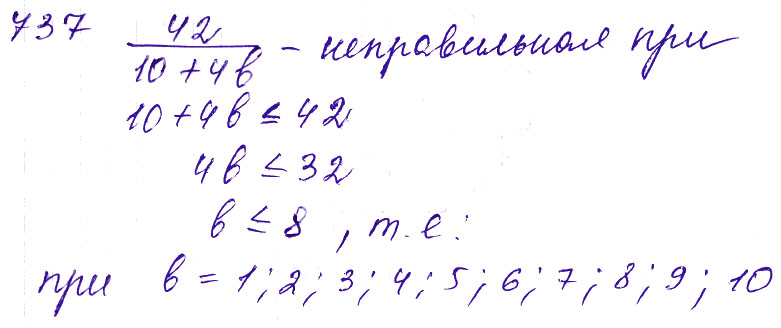 737 42/(10+4в) - неправильная при
10+4в ≤ 42
4в ≤ 32
в ≤ 8, т.е:
при в = 1; 2; 3; 4; 5; 6; 7; 8; 9; 10